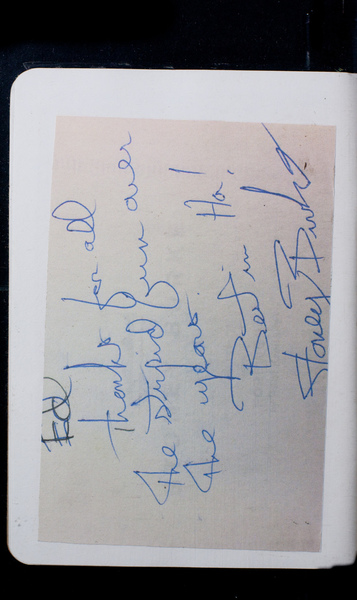 Ed
Thanks for all
the stupid fun over
the years. Ha!
Best in
Stoney Burke